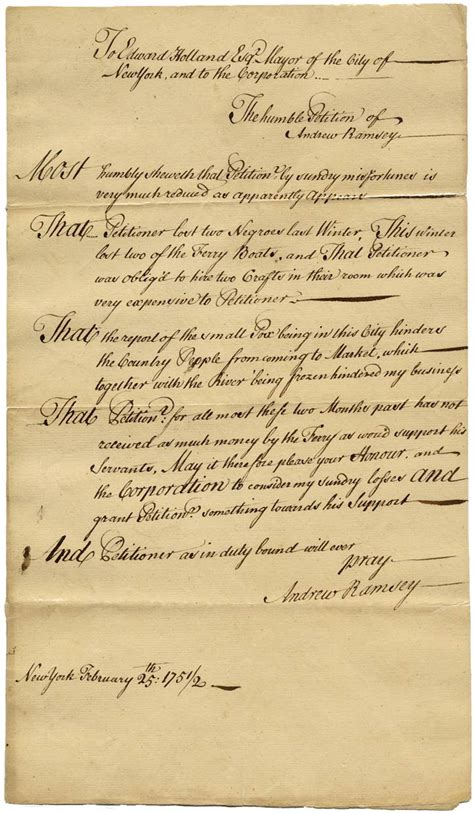 To Edward Holland Esqr. Mayor of the City of
NewYork, and to the Corporation
The humble Petition of
Andrew Ramsey
Most humbly sheweth that Petitionr. by sundry misfortunes is
very much reduced as apparently Appears
That Petitioner lost two Negroes last Winter, This winter
lost two of the Ferry Boats, and That Petitioner
was oblig'd to hire two Crafts in their room which was
very expensive to Petitioner
That the report of the small Pox being in this City hinders
the Country People from coming to Market, which
together with the River being frozen hindered my business
That Petitionr. for all most these two Months past has not
received as much money by the Ferry as woud support his
Servants, May it therefore please your Honour, and
the Corporation to consider my sundry losses and
grant Petitionr. something towards his Support
And Petitioner as in duty bound will ever
pray
Andrew Ramsey
NewYork February 25th: 1751/2